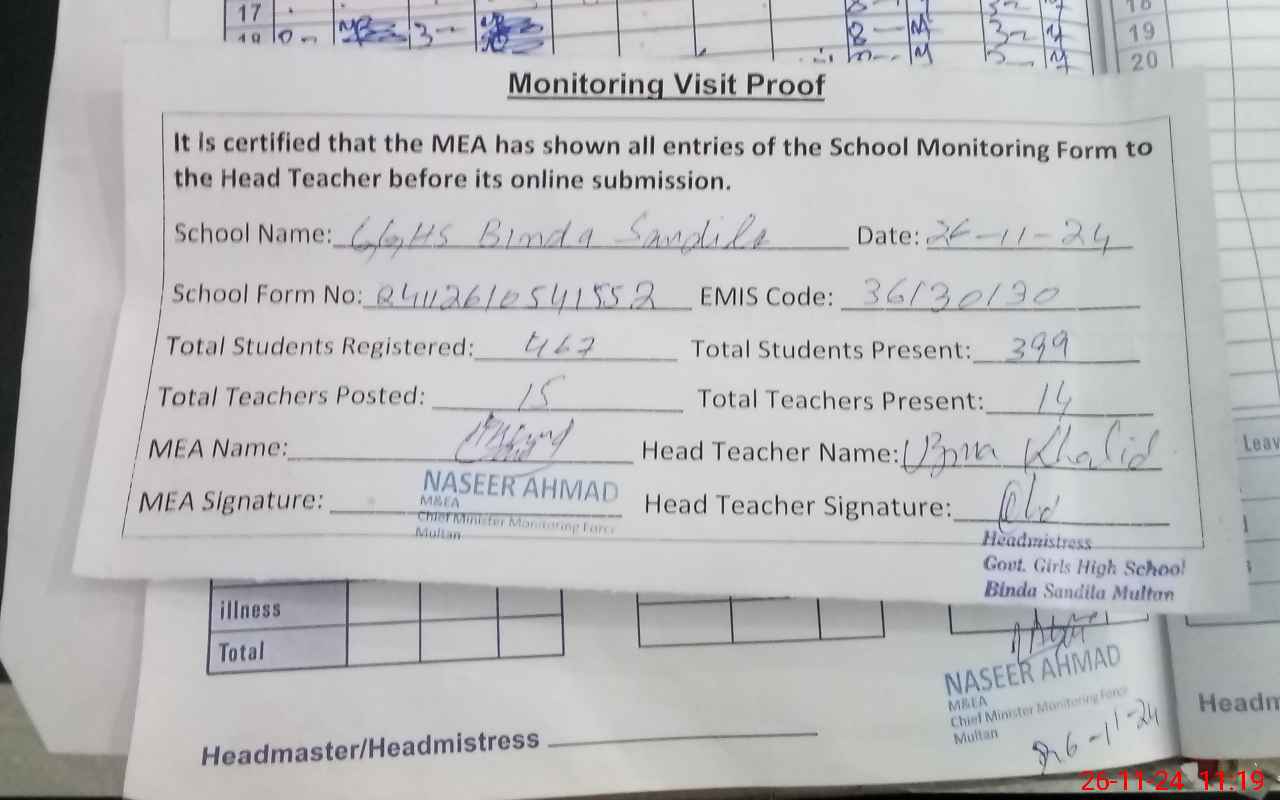 17
18
19
20
Monitoring Visit Proof
It is certified that the MEA has shown all entries of the School Monitoring Form to
the Head Teacher before its online submission.
School Name: GGHS Binda Sandila Date: 26-11-24
School Form No: 24112610541552 EMIS Code: 36130130
Total Students Registered: 467 Total Students Present: 399
Total Teachers Posted: 15 Total Teachers Present: 14
MEA Name: Head Teacher Name: Uzma Khalid
MEA Signature: Head Teacher Signature:
NASEER AHMAD
M&EA
Chief Minister Monitoring Force
Multan
Headmistress
Govt. Girls High School
Binda Sandila Multan
illness
Total
NASEER AHMAD
M&EA
Chief Minister Monitoring Force
Multan
26-11-24
Headmaster/Headmistress
26-11-24 11:19